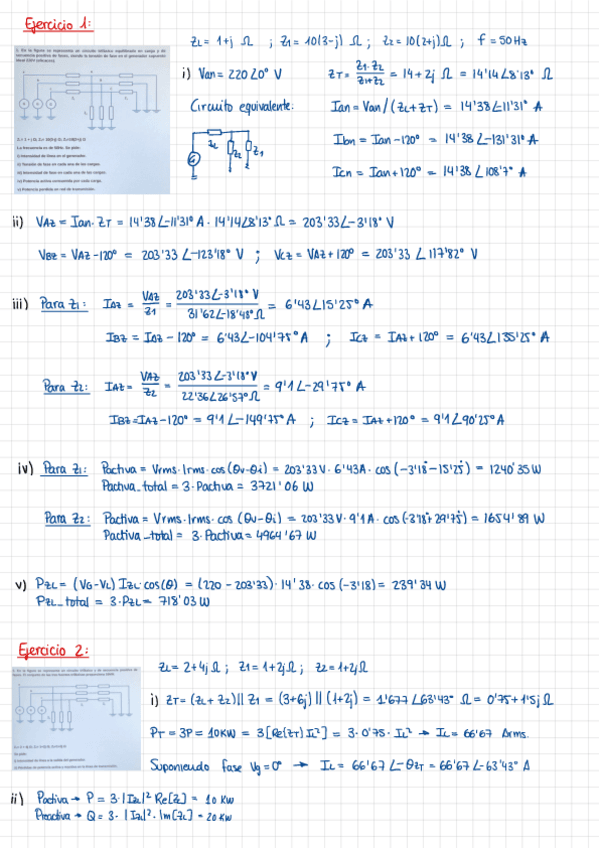 Ejercicio 1:
ZL = 1+j Ω ; Z1 = 10(3-j) Ω ; Z2 = 10(2+j) Ω ; f = 50Hz
i) Van = 220∠0° V
ZT = Z1·Z2/Z1+Z2 = 14+2j Ω = 14'14∠8'13° Ω
Circuito equivalente:
Ian = Van/(ZL+ZT) = 14'38∠-11'31° A
Ibn = Ian-120° = 14'38∠-131'31° A
Icn = Ian+120° = 14'38∠108'7° A
ZL
Z2
Z1
ii) VAZ = Ian·ZT = 14'38∠-11'31° A · 14'14∠8'13° Ω = 203'33∠-3'18° V
VBZ = VAZ-120° = 203'33∠-123'18° V ; VCZ = VAZ+120° = 203'33∠117'82° V
iii) Para Z1: IAZ = VAZ/Z1 = 203'33∠-3'18° V/31'62∠-18'48° Ω = 6'43∠15'25° A
IBZ = IAZ-120° = 6'43∠-104'75° A ; ICZ = IAZ+120° = 6'43∠135'25° A
Para Z2: IAZ = VAZ/Z2 = 203'33∠-3'18° V/22'36∠26'57° Ω = 9'1∠-29'75° A
IBZ = IAZ-120° = 9'1∠-149'75° A ; ICZ = IAZ+120° = 9'1∠90'25° A
iv) Para Z1: Pactiva = Vrms·Irms·cos(θv-θi) = 203'33V·6'43A·cos(-3'18°-15'25°) = 1240'35W
Pactiva_total = 3·Pactiva = 3721'06 W
Para Z2: Pactiva = Vrms·Irms·cos(θv-θi) = 203'33V·9'1A·cos(-3'18°+29'75°) = 1654'89 W
Pactiva_total = 3·Pactiva = 4964'67 W
v) PZL = (VG-VL)IZL·cos(θ) = (220-203'33)·14'38·cos(-3'18) = 239'34 W
PZL_total = 3·PZL = 718'03 W
Ejercicio 2:
ZL = 2+4j Ω ; Z1 = 1+2j Ω ; Z2 = 1+2j Ω
i) ZT = (ZL+Z2)||Z1 = (3+6j)||(1+2j) = 1'677∠63'43° Ω = 0'75+1'5j Ω
PT = 3P = 10KW = 3[Re(ZT)IL²] = 3·0'75·IL² → IL = 66'67 Arms.
Suponiendo fase Vg=0° → IL = 66'67∠-θZT = 66'67∠-63'43° A
ii) Pactiva → P = 3·|IZL|² Re[ZL] = 10 KW
Preactiva → Q = 3·|IZL|²·Im[ZL] = 20 KW